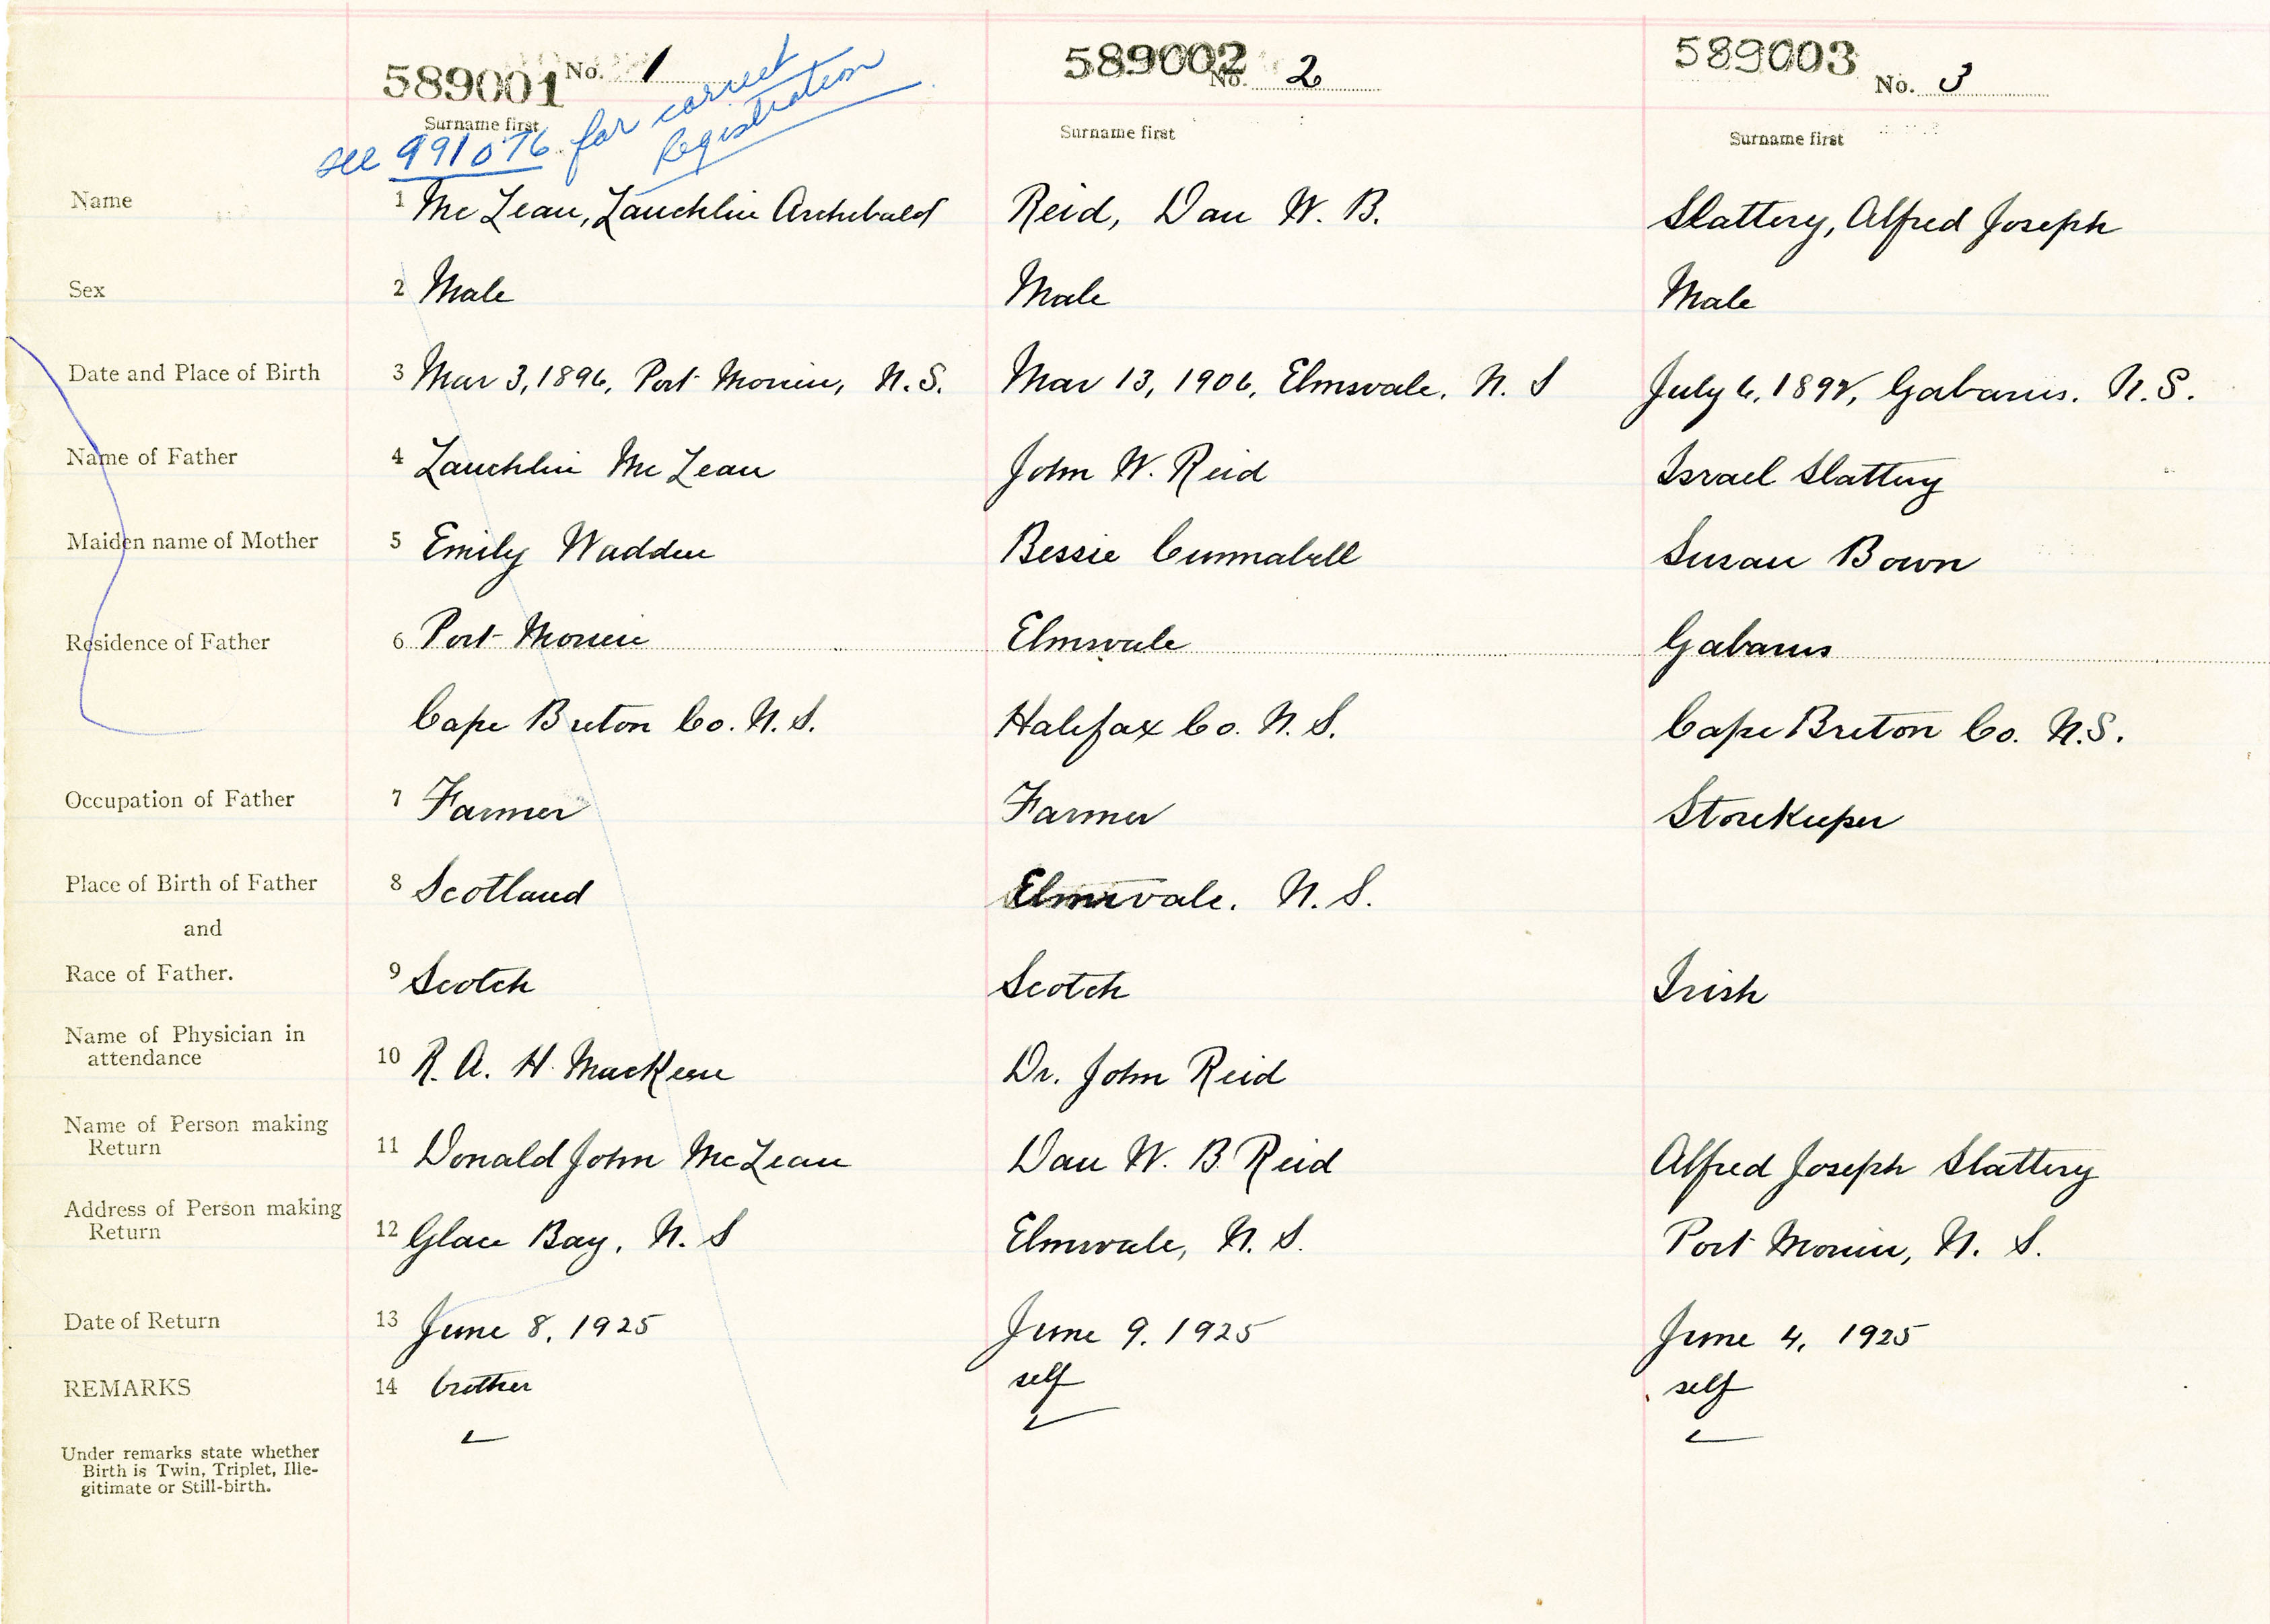 589001 No. 1 589002 No. 2 589003 No. 3
Surname first Surname first Surname first
see 991076 for correct
Registration
Name 1 McLean, Lauchlin Archibald Reid, Dan W. B. Slattery, Alfred Joseph
Sex 2 Male Male Male
Date and Place of Birth 3 Mar 3, 1896, Port Morien, N.S. Mar 13, 1906, Elmsvale, N. S July 6, 1898, Gabarus. N.S.
Name of Father 4 Lauchlin McLean John W. Reid Israel Slattery
Maiden name of Mother 5 Emily Wadden Bessie Cunnabell Susan Bown
Residence of Father 6 Port Morien Elmsvale Gabarus
Cape Breton Co. N.S. Halifax Co. N.S. Cape Breton Co. N.S.
Occupation of Father 7 Farmer Farmer Storekeeper
Place of Birth of Father 8 Scotland Elmsvale. N.S.
and
Race of Father. 9 Scotch Scotch Irish
Name of Physician in
attendance 10 R. A. H. MacKeen Dr. John Reid
Name of Person making
Return 11 Donald John McLean Dan W. B. Reid Alfred Joseph Slattery
Address of Person making
Return 12 Glace Bay, N. S Elmsvale, N. S. Port Morien, N. S.
Date of Return 13 June 8, 1925 June 9, 1925 June 4, 1925
REMARKS 14 brother self self
Under remarks state whether
Birth is Twin, Triplet, Ille-
gitimate or Still-birth.